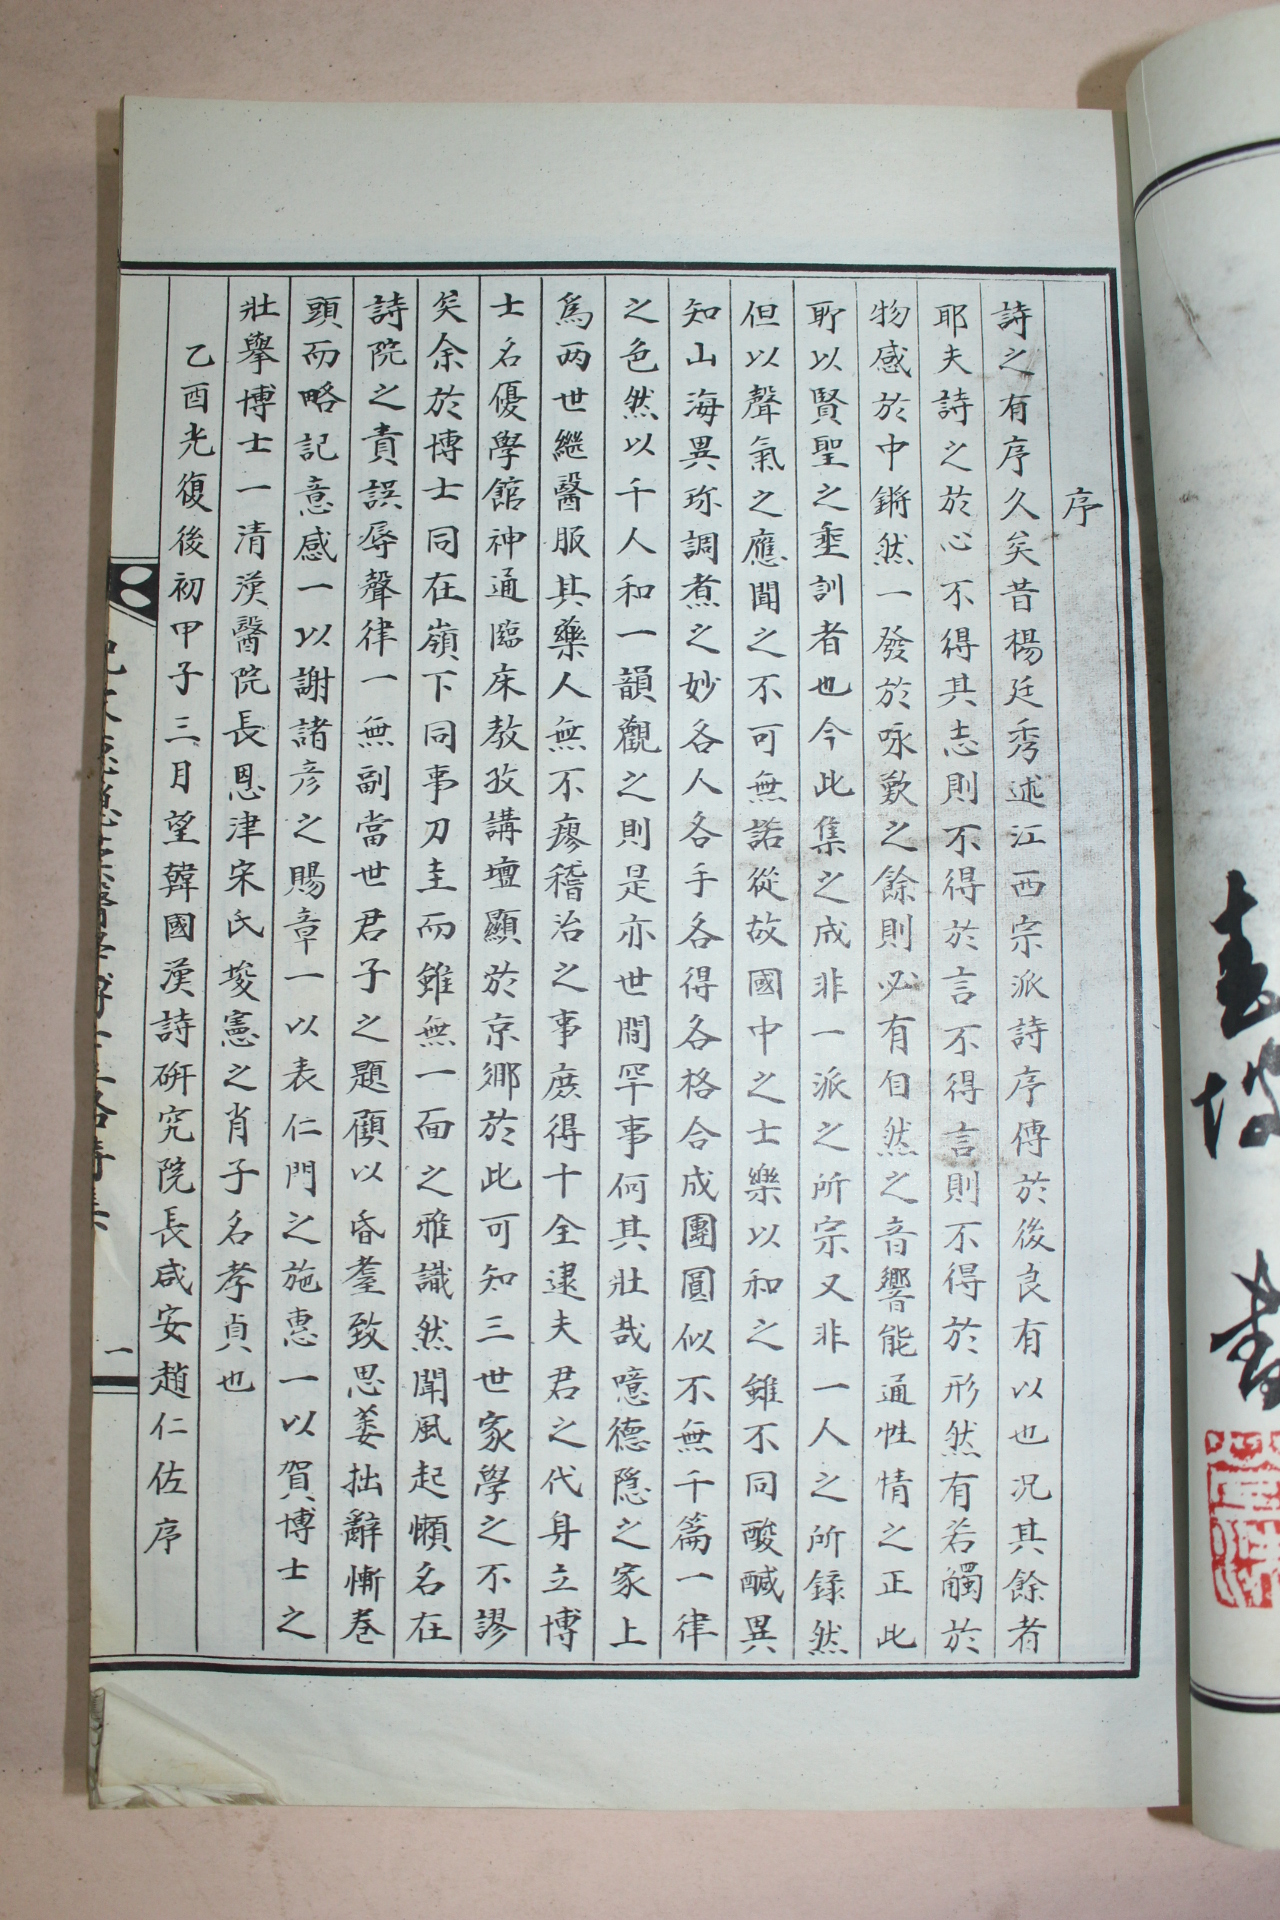 序
詩之有序久矣昔楊廷秀述江西宗派詩序傳於後良有以也况其餘者
耶夫詩之於心不得其志則不得於言不得言則不得於形然有若觸於
物感於中鏘然一發於咏歎之餘則必有自然之音響能通性情之正此
所以賢聖之垂訓者也今此集之成非一派之所宗又非一人之所録然
但以聲氣之應聞之不可無諾從故國中之士樂以和之雖不同酸醎異
知山海異珎調煮之妙各人各手各得各格合成團圓似不無千篇一律
之色然以千人和一韻觀之則是亦世間罕事何其壯哉噫德隐之家上
爲两世継醫服其藥人無不瘳稽治之事庶得十全逮夫君之代身立博
士名優學館神通臨床教孜講壇顯於京鄉於此可知三世家學之不謬
矣余於博士同在嶺下同事刀圭而雖無一面之雅識然聞風起懶名在
詩院之責誤辱聲律一無副當世君子之題顧以昏耋致思萎拙辭慚巻
頭而略記意感一以謝諸彦之賜章一以表仁門之施惠一以賀博士之
壯擧博士一清漢醫院長恩津宋氏埈憲之肖子名孝貞也
乙酉光復後初甲子三月望韓國漢詩研究院長咸安趙仁佐序
一